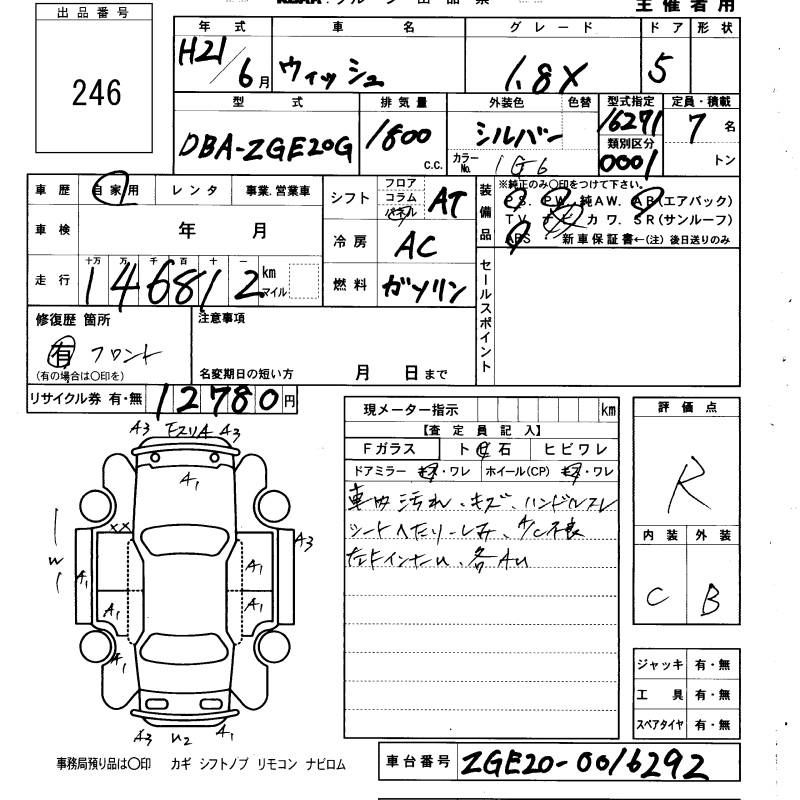 出品番号
246
主催者用
年式 車名 グレード ドア 形状
H21/6月 ウィッシュ 1.8X 5
型式 排気量 外装色 色替 型式指定 定員・積載
DBA-ZGE20G 1800 c.c. シルバー 16271 7名
カラーNo. 1G6 類別区分 0001 トン
車歴 自家用 レンタ 事業.営業車
車検 年 月
走行 十万 万 千 百 十 一
146812 km マイル
シフト フロア コラム パネル AT
冷房 AC
燃料 ガソリン
装備品
※純正のみ○印をつけて下さい。
PS. PW. 純AW. AB(エアバック)
TV. ナビ. カワ. SR(サンルーフ)
ABS 新車保証書←(注) 後日送りのみ
セールスポイント
修復歴 箇所
有 フロント
(有の場合は○印を)
注意事項
名変期日の短い方 月 日まで
リサイクル券 有・無 12780円
現メーター指示 km
【査定員記入】
Fガラス ト 石 ヒビワレ
ドアミラー キズ・ワレ ホイール(CP) キズ・ワレ
車内汚れ、キズ、ハンドルスレ
シートへたり・しみ、A/C不良
各AU
評価点
R
内装 外装
C B
ジャッキ 有・無
工具 有・無
スペアタイヤ 有・無
A3 A3
A1
XX
A3
W
A1 A1
A1 A1
A1
A3 U2 A1
事務局預り品は○印 カギ シフトノブ リモコン ナビロム
車台番号 ZGE20-0016292